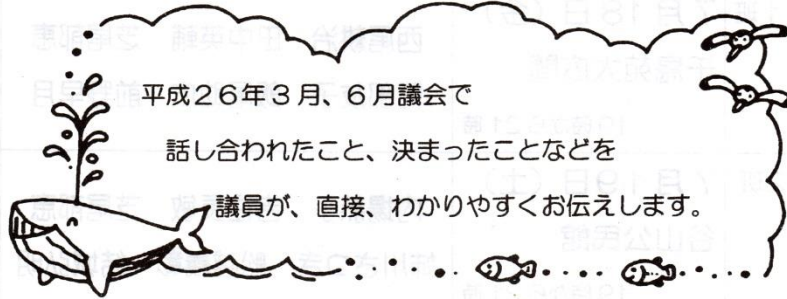 平成26年3月、6月議会で
話し合われたこと、決まったことなどを
議員が、直接、わかりやすくお伝えします。